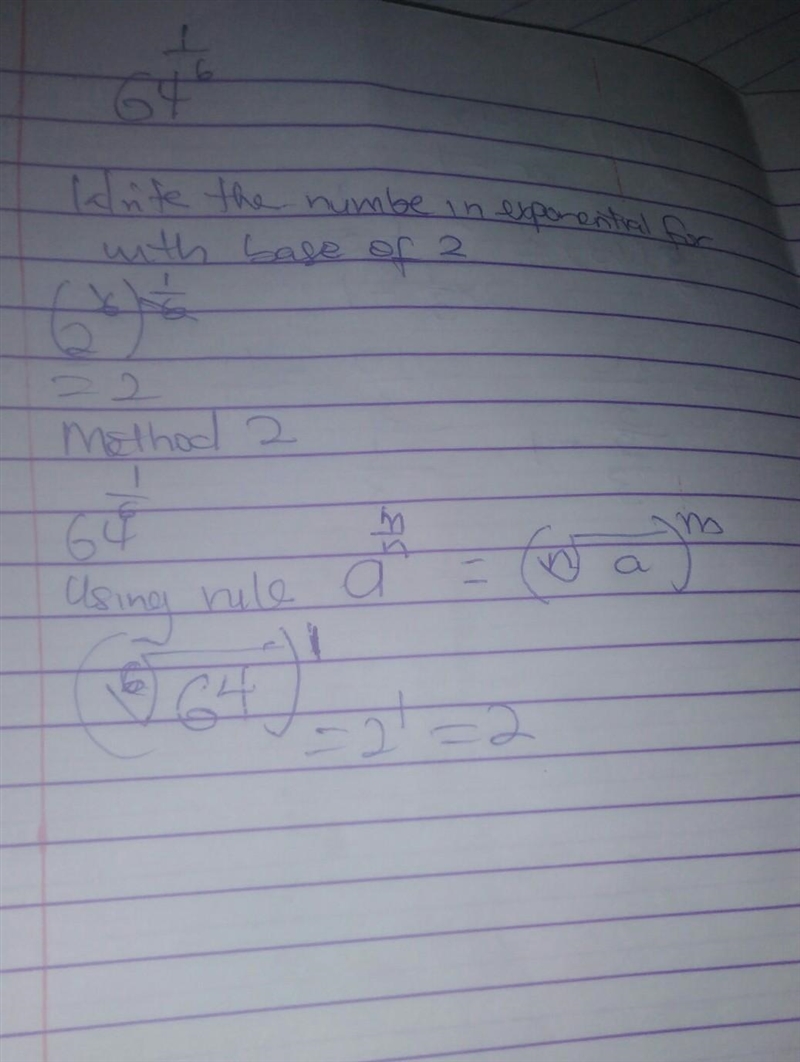 64^(1/6)
Write the numbe in exponential for
with base of 2
(2^6)^(1/6)
= 2
Method 2
64^(1/6)
Using rule a^(m/n) = (ⁿ√a)^m
(⁶√64)^1 = 2^1 = 2